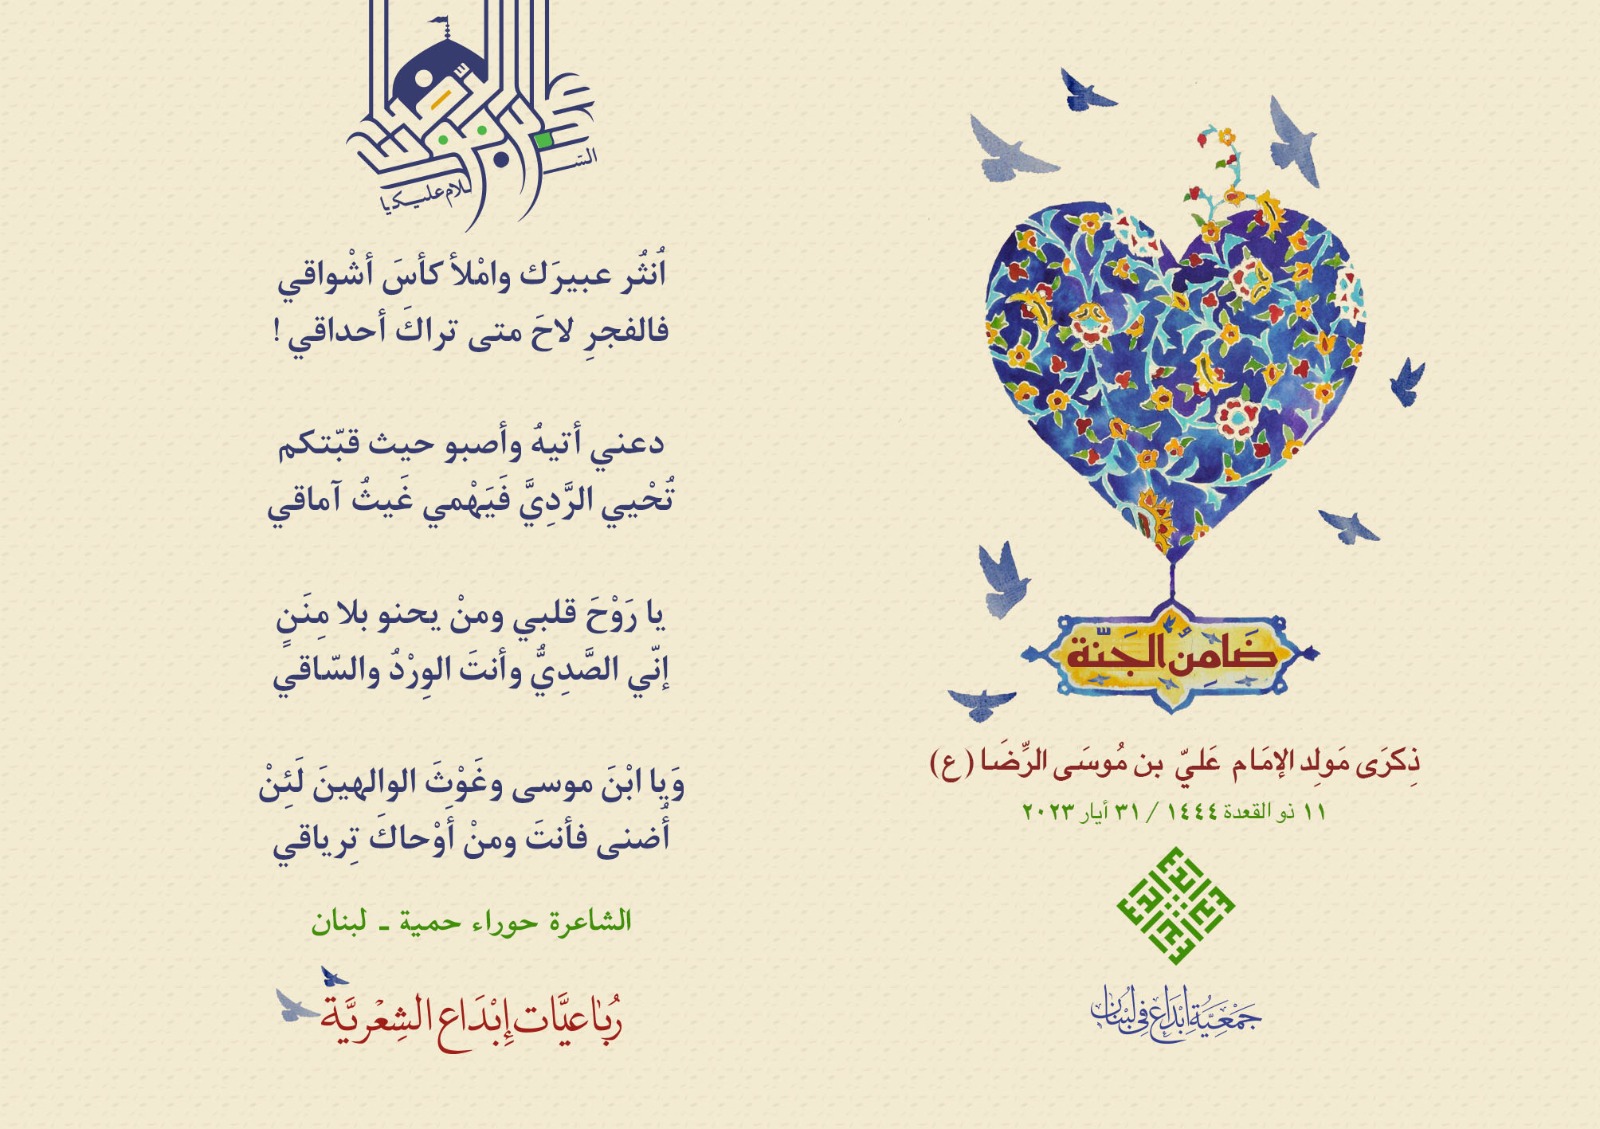 ضَامِنُ الجَنَّة
ذِكرَى مَولِد الإمَام عَليّ بن مُوسَى الرِّضَا (ع)
١١ ذو القعدة ١٤٤٤ / ٣١ أيار ٢٠٢٣
إبداع
جَمْعِيَّةُ إبْدَاع فِي لُبْنَان
السّلام عليك يا علي بن موسى الرضا
اُنثُر عبيرَك وامْلأ كأسَ أشْواقي
فالفجرِ لاحَ متى تراكَ أحداقي !
دعني أتيهُ وأصبو حيث قبّتكم
تُحْيي الرَّدِيَّ فَيَهْمي غَيثُ آماقي
يا رَوْحَ قلبي ومنْ يحنو بلا مِنَنٍ
إنّي الصَّدِيُّ وأنتَ الوِرْدُ والسّاقي
وَيا ابْنَ موسى وغَوْثَ الوالهينَ لَئِنْ
أُضنى فأنتَ ومنْ أوْحاكَ تِرياقي
الشاعرة حوراء حمية ـ لبنان
رُبَاعيَّات إِبْدَاع الشِعْريَّة